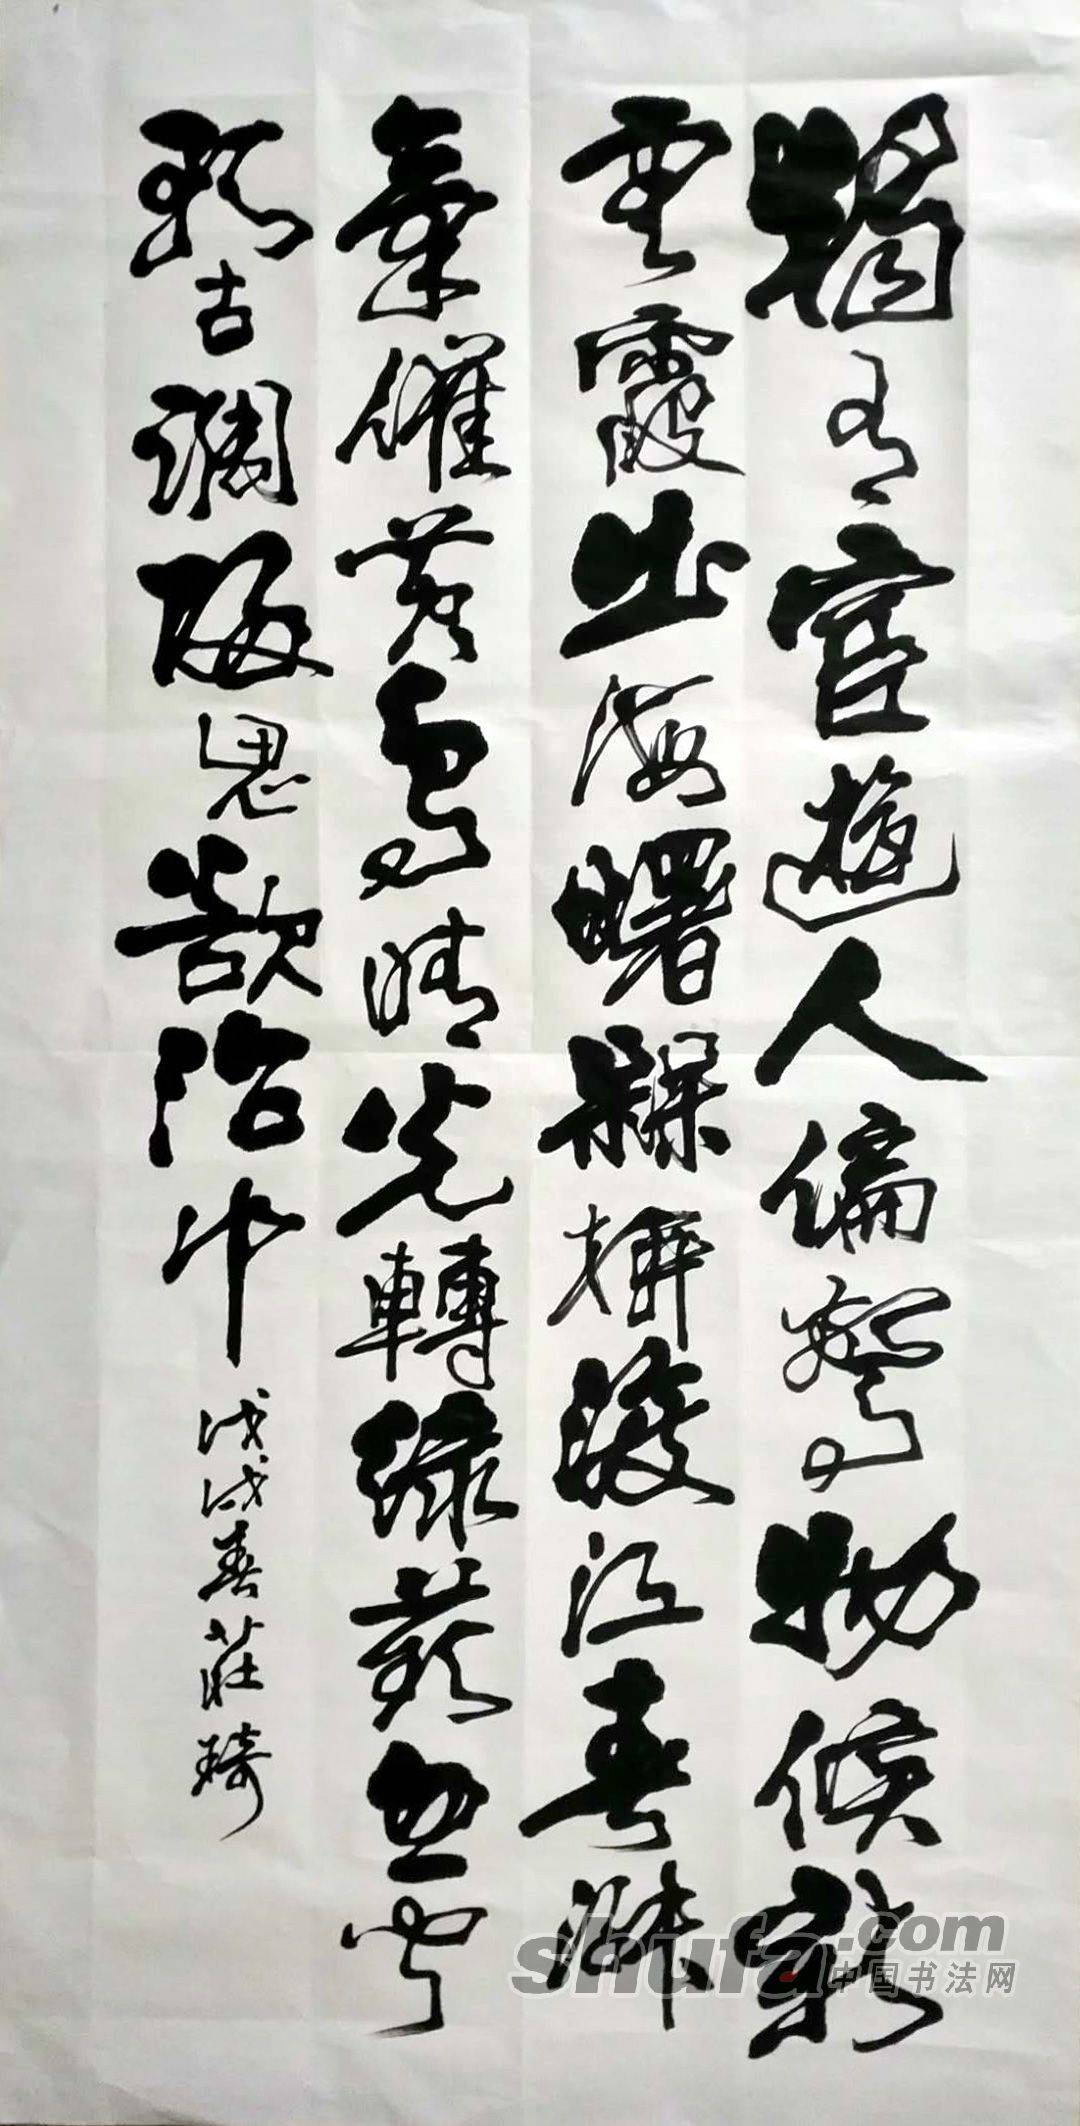 獨有宦遊人偏驚物候新
雲霞出海曙槑柳渡江春淑
氣催黃鳥晴光轉綠蘋忽聞
歌古調歸思欲沾巾
戊戌春莊琦
shufa.com
中国书法网